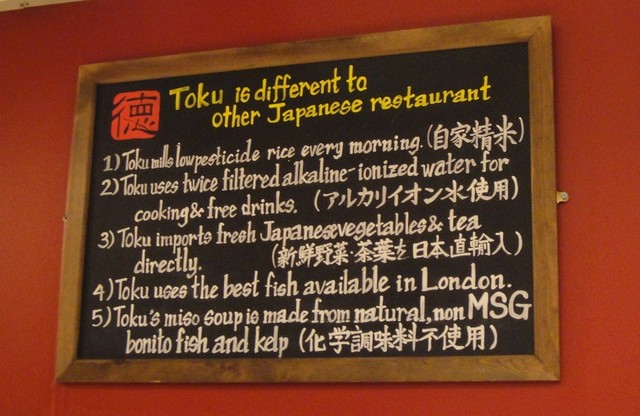 徳
Toku is different to
other Japanese restaurant
1) Toku mills lowpesticide rice every morning. (自家精米)
2) Toku uses twice filtered alkaline-ionized water for
cooking & free drinks. (アルカリイオン水使用)
3) Toku imports fresh Japanese vegetables & tea
directly. (新鮮野菜・茶葉を日本直輸入)
4) Toku uses the best fish available in London.
5) Toku's miso soup is made from natural, non MSG
bonito fish and kelp (化学調味料不使用)